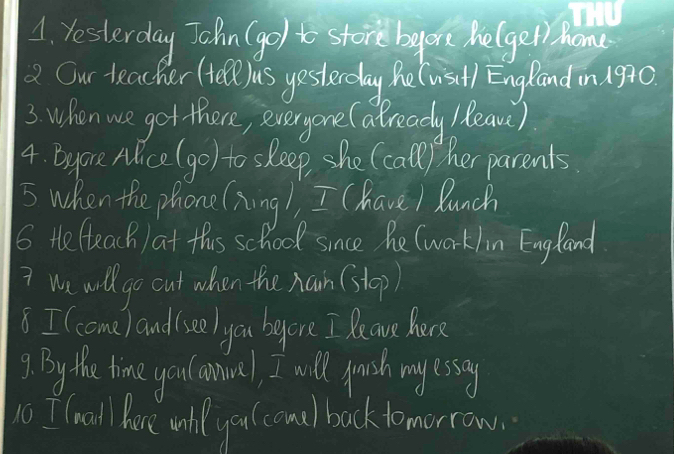 THỨ
1. Yesterday John (go) to store before he (get) home.
2 Our teacher (tell) us yesterday he (visit) England in 1970.
3. When we got there, everyone (already / leave)
4. Before Alice (go) to sleep, she (call) her parents.
5 When the phone (ring), I (have) lunch
6 He (teach) at this school since he (work) in England.
7 We will go out when the rain (stop)
8 I (come) and (see) you before I leave here
9. By the time you (arrive), I will finish my essay
10 I (wait) here until you (come) back tomorrow.